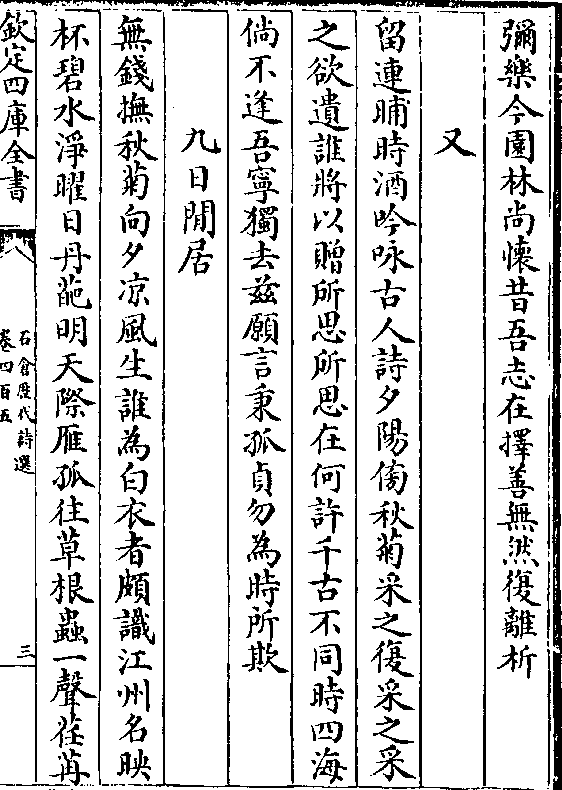 彌樂今園林尚懷昔吾志在擇善無然復離析
又
留連晡時酒吟咏古人詩夕陽傍秋菊采之復采之采
之欲遺誰將以贈所思所思在何許千古不同時四海
倘不逢吾寧獨去兹願言秉孤貞勿為時所欺
九日閒居
無錢撫秋菊向夕凉風生誰為白衣者頗識江州名映
杯碧水淨曜日丹葩明天際雁孤往草根蟲一聲荏苒
欽定四庫全書
石倉歷代詩選
卷四百五
三